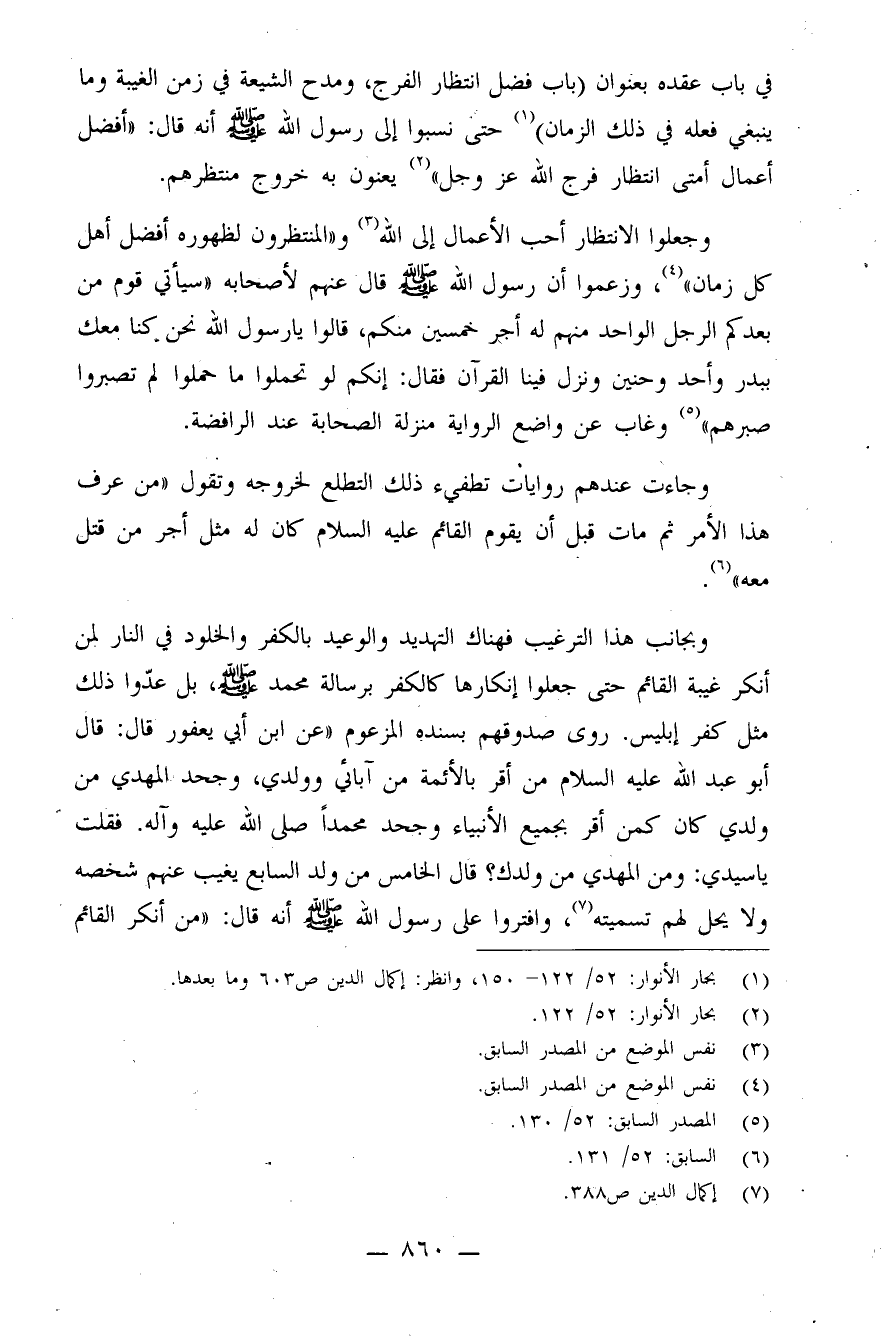 في باب عقده بعنوان (باب فضل انتظار الفرج، ومدح الشيعة في زمن الغيبة وما
ينبغي فعله في ذلك الزمان)(١) حتى نسبوا إلى رسول الله ﷺ أنه قال: «أفضل
أعمال أمتى انتظار فرج الله عز وجل»(٢) يعنون به خروج منتظرهم.
وجعلوا الانتظار أحب الأعمال إلى الله(٣) و«المنتظرون لظهوره أفضل أهل
كل زمان»(٤)، وزعموا أن رسول الله ﷺ قال عنهم لأصحابه «سيأتي قوم من
بعدكم الرجل الواحد منهم له أجر خمسين منكم، قالوا يارسول الله نحن كنا معك
ببدر وأحد وحنين ونزل فينا القرآن فقال: إنكم لو تحملوا ما حملوا لم تصبروا
صبرهم»(٥) وغاب عن واضع الرواية منزلة الصحابة عند الرافضة.
وجاءت عندهم روايات تطفيء ذلك التطلع لخروجه وتقول «من عرف
هذا الأمر ثم مات قبل أن يقوم القائم عليه السلام كان له مثل أجر من قتل
معه»(٦).
وبجانب هذا الترغيب فهناك التهديد والوعيد بالكفر والخلود في النار لمن
أنكر غيبة القائم حتى جعلوا إنكارها كالكفر برسالة محمد ﷺ، بل عدّوا ذلك
مثل كفر إبليس. روى صدوقهم بسنده المزعوم «عن ابن أبي يعفور قال: قال
أبو عبد الله عليه السلام من أقر بالأئمة من آبائي وولدي، وجحد المهدي من
ولدي كان كمن أقر بجميع الأنبياء وجحد محمداً صلى الله عليه وآله. فقلت
ياسيدي: ومن المهدي من ولدك؟ قال الخامس من ولد السابع يغيب عنهم شخصه
ولا يحل لهم تسميته(٧)، وافتروا على رسول الله ﷺ أنه قال: «من أنكر القائم
(١) بحار الأنوار: ٥٢/ ١٢٢- ١٥٠، وانظر: إكمال الدين ص٦٠٣ وما بعدها.
(٢) بحار الأنوار: ٥٢/ ١٢٢.
(٣) نفس الموضع من المصدر السابق.
(٤) نفس الموضع من المصدر السابق.
(٥) المصدر السابق: ٥٢/ ١٣٠.
(٦) السابق: ٥٢/ ١٣١.
(٧) إكمال الدين ص٣٨٨.
— ٨٦٠ —